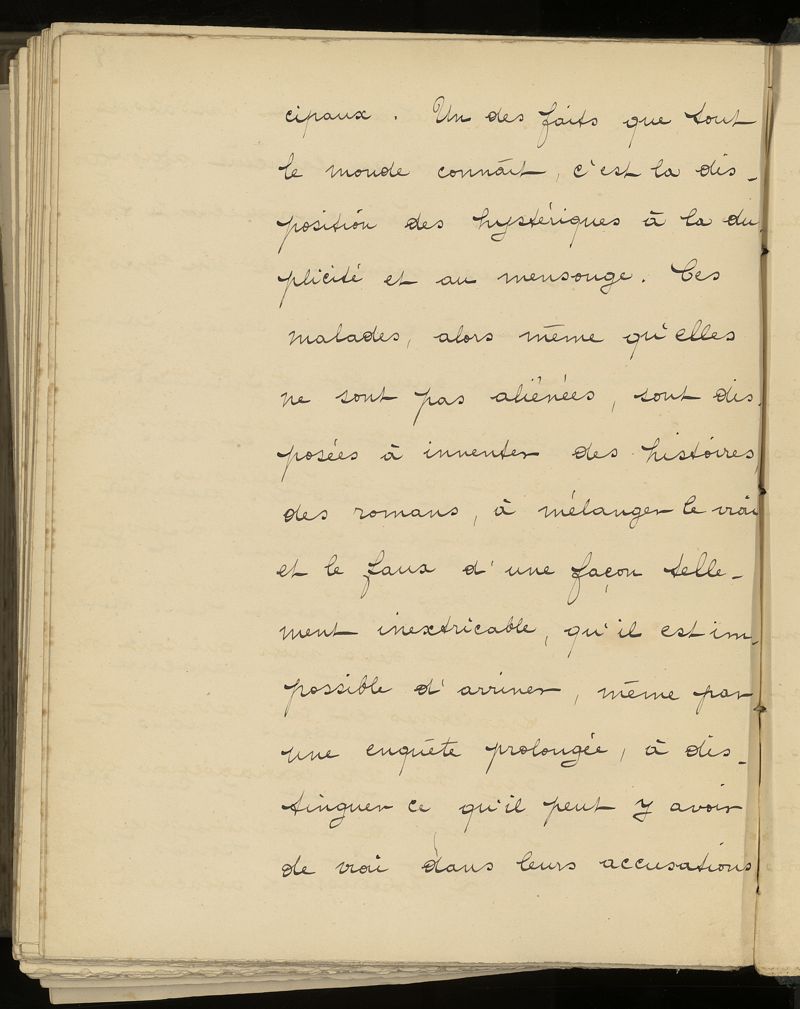 cipaux. Un des faits que tout
le monde connait, c'est la dis-
position des hystériques à la du-
plicité et au mensonge. Ces
malades, alors même qu'elles
ne sont pas aliénées, sont dis-
posées à inventer des histoires,
des romans, à mélanger le vrai
et le faux d'une façon telle-
ment inextricable, qu'il est im-
possible d'arriver, même par
une enquête prolongée, à dis-
tinguer ce qu'il peut y avoir
de vrai dans leurs accusations